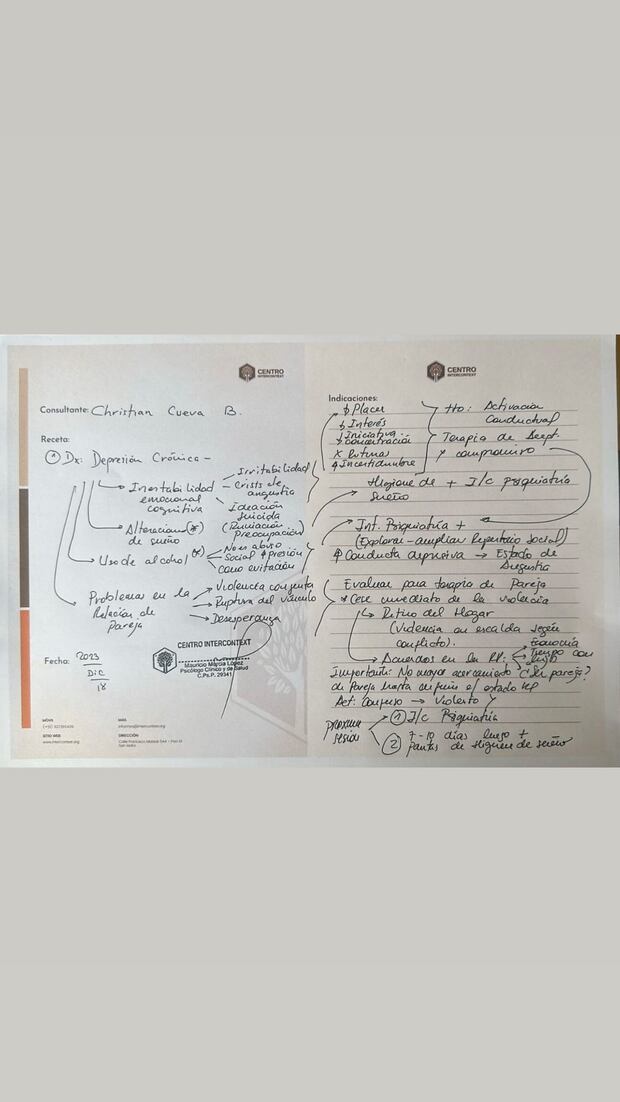 CENTRO
INTERCONTEXT
Consultante: Christian Cueva B.
Receta:
① Dx: Depresión Crónica -
Inestabilidad
emocional
cognitiva
Irritabilidad
Crisis de
angustia
Ideación
Suicida
(Rumiación
Preocupación)
Alteraciones (*)
de sueño
Uso de alcohol (*)
No es abuso
Social ↑ presión
como evitación
Problemas en la
Relación de
Pareja
Violencia conjunta
Ruptura del vínculo
Desesperanza
Fecha: 2023
Dic
18
CENTRO INTERCONTEXT
Mauricio Murcia López
Psicólogo Clínico y de Salud
C.Ps.P. 29341
MÓVIL
MAIL
SITIO WEB
www.intercontext.org
DIRECCIÓN
San Isidro
CENTRO
INTERCONTEXT
Indicaciones:
↓ Placer
↓ Interés
↓ Iniciativa
↓ Concentración
x Rutinas
↑ Incertidumbre
tto: Activación
Conductual
Terapia de Acept.
y compromiso
Higiene de + I/c psiquiatría
sueño
Int. Psiquiatría +
(Explorar - ampliar Repertorio Social)
↑ Conducta depresiva → Estado de
Angustia
Evaluar para terapia de Pareja
* Cese inmediato de la violencia
↳ Retiro del Hogar
(Violencia en escalda según
conflicto).
Acuerdos en la
Economía
Tiempo con
hijos
Importante: No mayor acercamiento
de pareja hasta
¿Sn pareja?
Act. Confuso → Violento
próxima
sesión
① I/c Psiquiatría
② 7-10 días luego +
pautas de Higiene de sueño